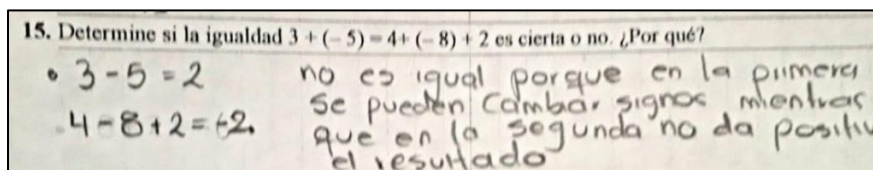 15. Determine si la igualdad 3 + (– 5) = 4+ (– 8) + 2 es cierta o no. ¿Por qué?
• 3 - 5 = 2 no es igual porque en la primera
se pueden cambar signos mientras
4 - 8 + 2 = -2. que en la segunda no da positiv
el resultado